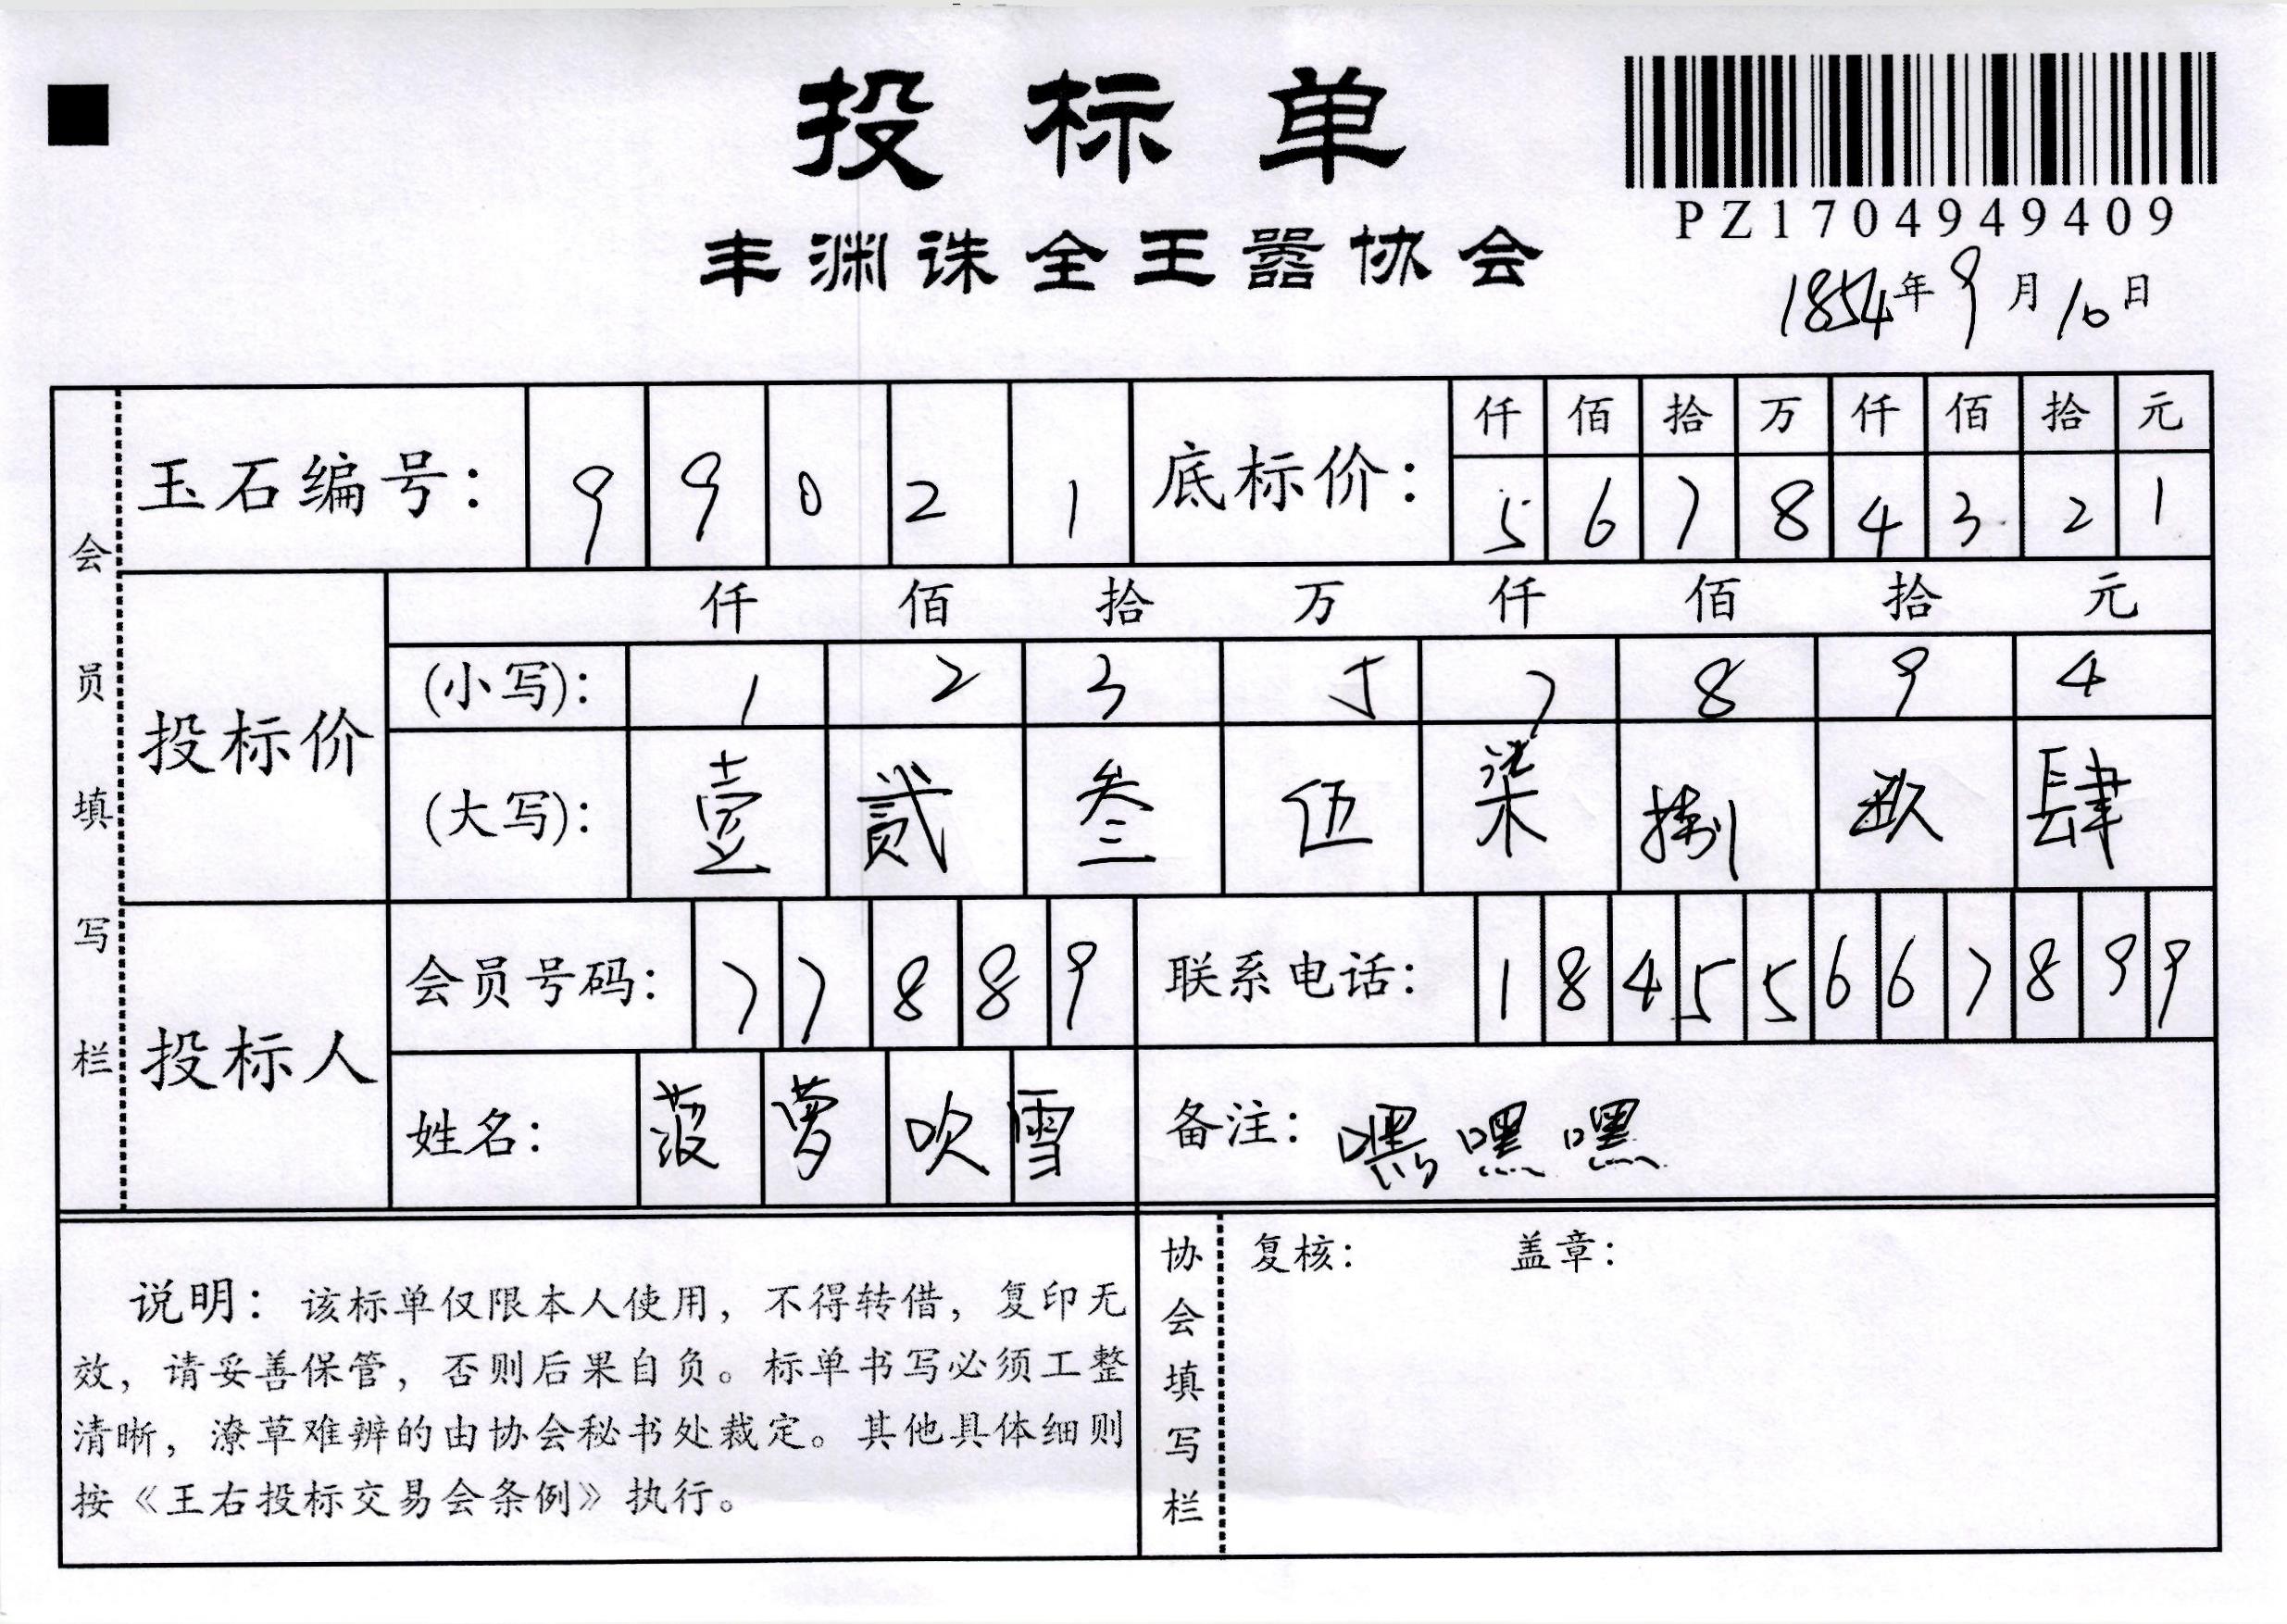 投标单
PZ1704949409
丰渊诛全王嚣协会
1854年9月10日
会员填写栏
玉石编号： 9 9 0 2 1
底标价：
仟 佰 拾 万 仟 佰 拾 元
5 6 7 8 4 3 2 1
投标价
仟 佰 拾 万 仟 佰 拾 元
(小写)： 1 2 3 5 7 8 9 4
(大写)： 壹 贰 叁 伍 柒 捌 玖 肆
投标人
会员号码： 7 7 8 8 9
联系电话： 1 8 4 5 5 6 6 7 8 9 9
姓名： 菠 萝 吹 雪
备注： 嘿嘿嘿
说明：该标单仅限本人使用，不得转借，复印无
效，请妥善保管，否则后果自负。标单书写必须工整
清晰，潦草难辨的由协会秘书处裁定。其他具体细则
按《王右投标交易会条例》执行。
协会填写栏
复核： 盖章：